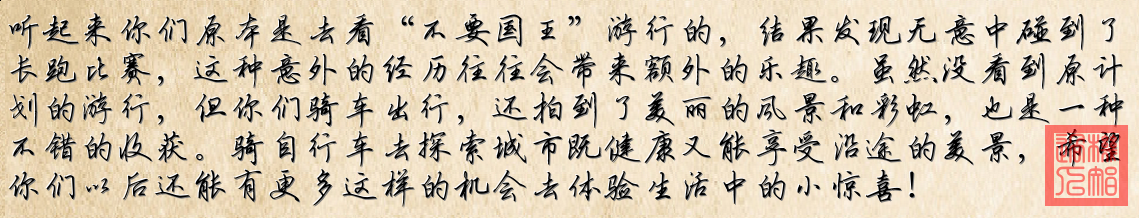 听起来你们原本是去看“不要国王”游行的，结果发现无意中碰到了
长跑比赛，这种意外的经历往往会带来额外的乐趣。虽然没看到原计
划的游行，但你们骑车出行，还拍到了美丽的风景和彩虹，也是一种
不错的收获。骑自行车去探索城市既健康又能享受沿途的美景，希望
你们以后还能有更多这样的机会去体验生活中的小惊喜！